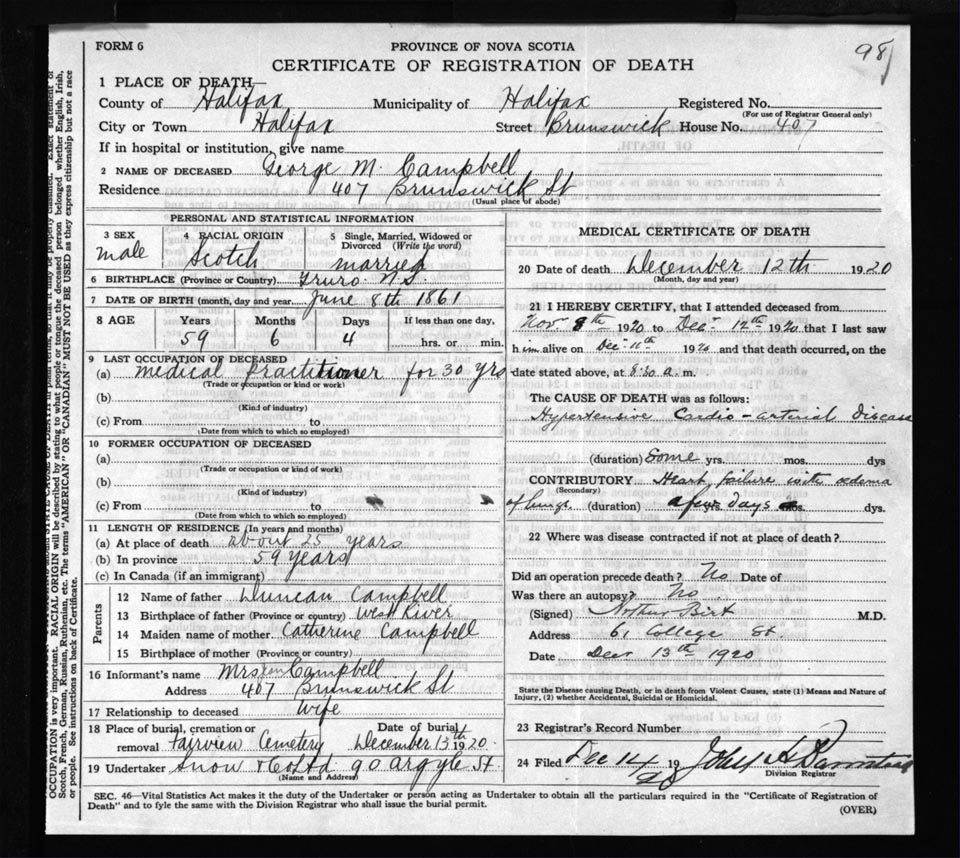 FORM 6
98
PROVINCE OF NOVA SCOTIA
CERTIFICATE OF REGISTRATION OF DEATH
1 PLACE OF DEATH—
County of Halifax Municipality of Halifax Registered No.
(For use of Registrar General only)
City or Town Halifax Street Brunswick House No. 407
If in hospital or institution, give name
2 NAME OF DECEASED George M. Campbell
Residence 407 Brunswick St
(Usual place of abode)
PERSONAL AND STATISTICAL INFORMATION
3 SEX male
4 RACIAL ORIGIN Scotch
5 Single, Married, Widowed or Divorced (Write the word) married
6 BIRTHPLACE (Province or Country) Truro N.S.
7 DATE OF BIRTH (month, day and year June 8th 1861
8 AGE Years Months Days If less than one day,
59 6 4 hrs. or min.
9 LAST OCCUPATION OF DECEASED
(a) Medical Practitioner for 30 yrs
(Trade or occupation or kind of work)
(b)
(Kind of industry)
(c) From to
(Date from which to which so employed)
10 FORMER OCCUPATION OF DECEASED
(a)
(Trade or occupation or kind of work)
(b)
(Kind of industry)
(c) From to
(Date from which to which so employed)
11 LENGTH OF RESIDENCE (In years and months)
(a) At place of death about 25 years
(b) In province 59 years
(c) In Canada (if an immigrant)
Parents
12 Name of father Duncan Campbell
13 Birthplace of father (Province or country) West River
14 Maiden name of mother Catherine Campbell
15 Birthplace of mother (Province or country)
16 Informant's name Mrs Campbell
Address 407 Brunswick St
17 Relationship to deceased wife
18 Place of burial, cremation or removal Fairview Cemetery Date of burial December 13th 1920
19 Undertaker Snow & Co Ltd 90 Argyle St.
(Name and Address)
MEDICAL CERTIFICATE OF DEATH
20 Date of death December 12th 1920
(Month, day and year)
21 I HEREBY CERTIFY, that I attended deceased from
Nov 8th 1920 to Decr 12th 1920 that I last saw
him alive on Decr 11th 1920 and that death occurred, on the
date stated above, at 8:30 a. m.
The CAUSE OF DEATH was as follows:
Hypertensive Cardio-arterial disease
(duration) Some yrs. mos. dys
CONTRIBUTORY Heart failure with oedema
(Secondary)
of lungs. (duration) a few days mos. dys.
22 Where was disease contracted if not at place of death?
Did an operation precede death? No Date of
Was there an autopsy? No.
(Signed) Arthur Birt M.D.
Address 61 College St.
Date Decr 13th 1920
State the Disease causing Death, or in death from Violent Causes, state (1) Means and Nature of
Injury, (2) whether Accidental, Suicidal or Homicidal.
23 Registrar's Record Number
24 Filed Dec 14 19 20
Division Registrar
SEC. 46—Vital Statistics Act makes it the duty of the Undertaker or person acting as Undertaker to obtain all the particulars required in the "Certificate of Registration of
Death" and to fyle the same with the Division Registrar who shall issue the burial permit.
(OVER)
OCCUPATION is very important. RACIAL ORIGIN will be described by stating to what people or tongue the deceased person belonged, whether English, Irish,
Scotch, French, German, Russian, Ruthenian, etc. The terms "AMERICAN" OR "CANADIAN" MUST NOT BE USED as they express citizenship but not a race
or people. See instructions on back of Certificate.